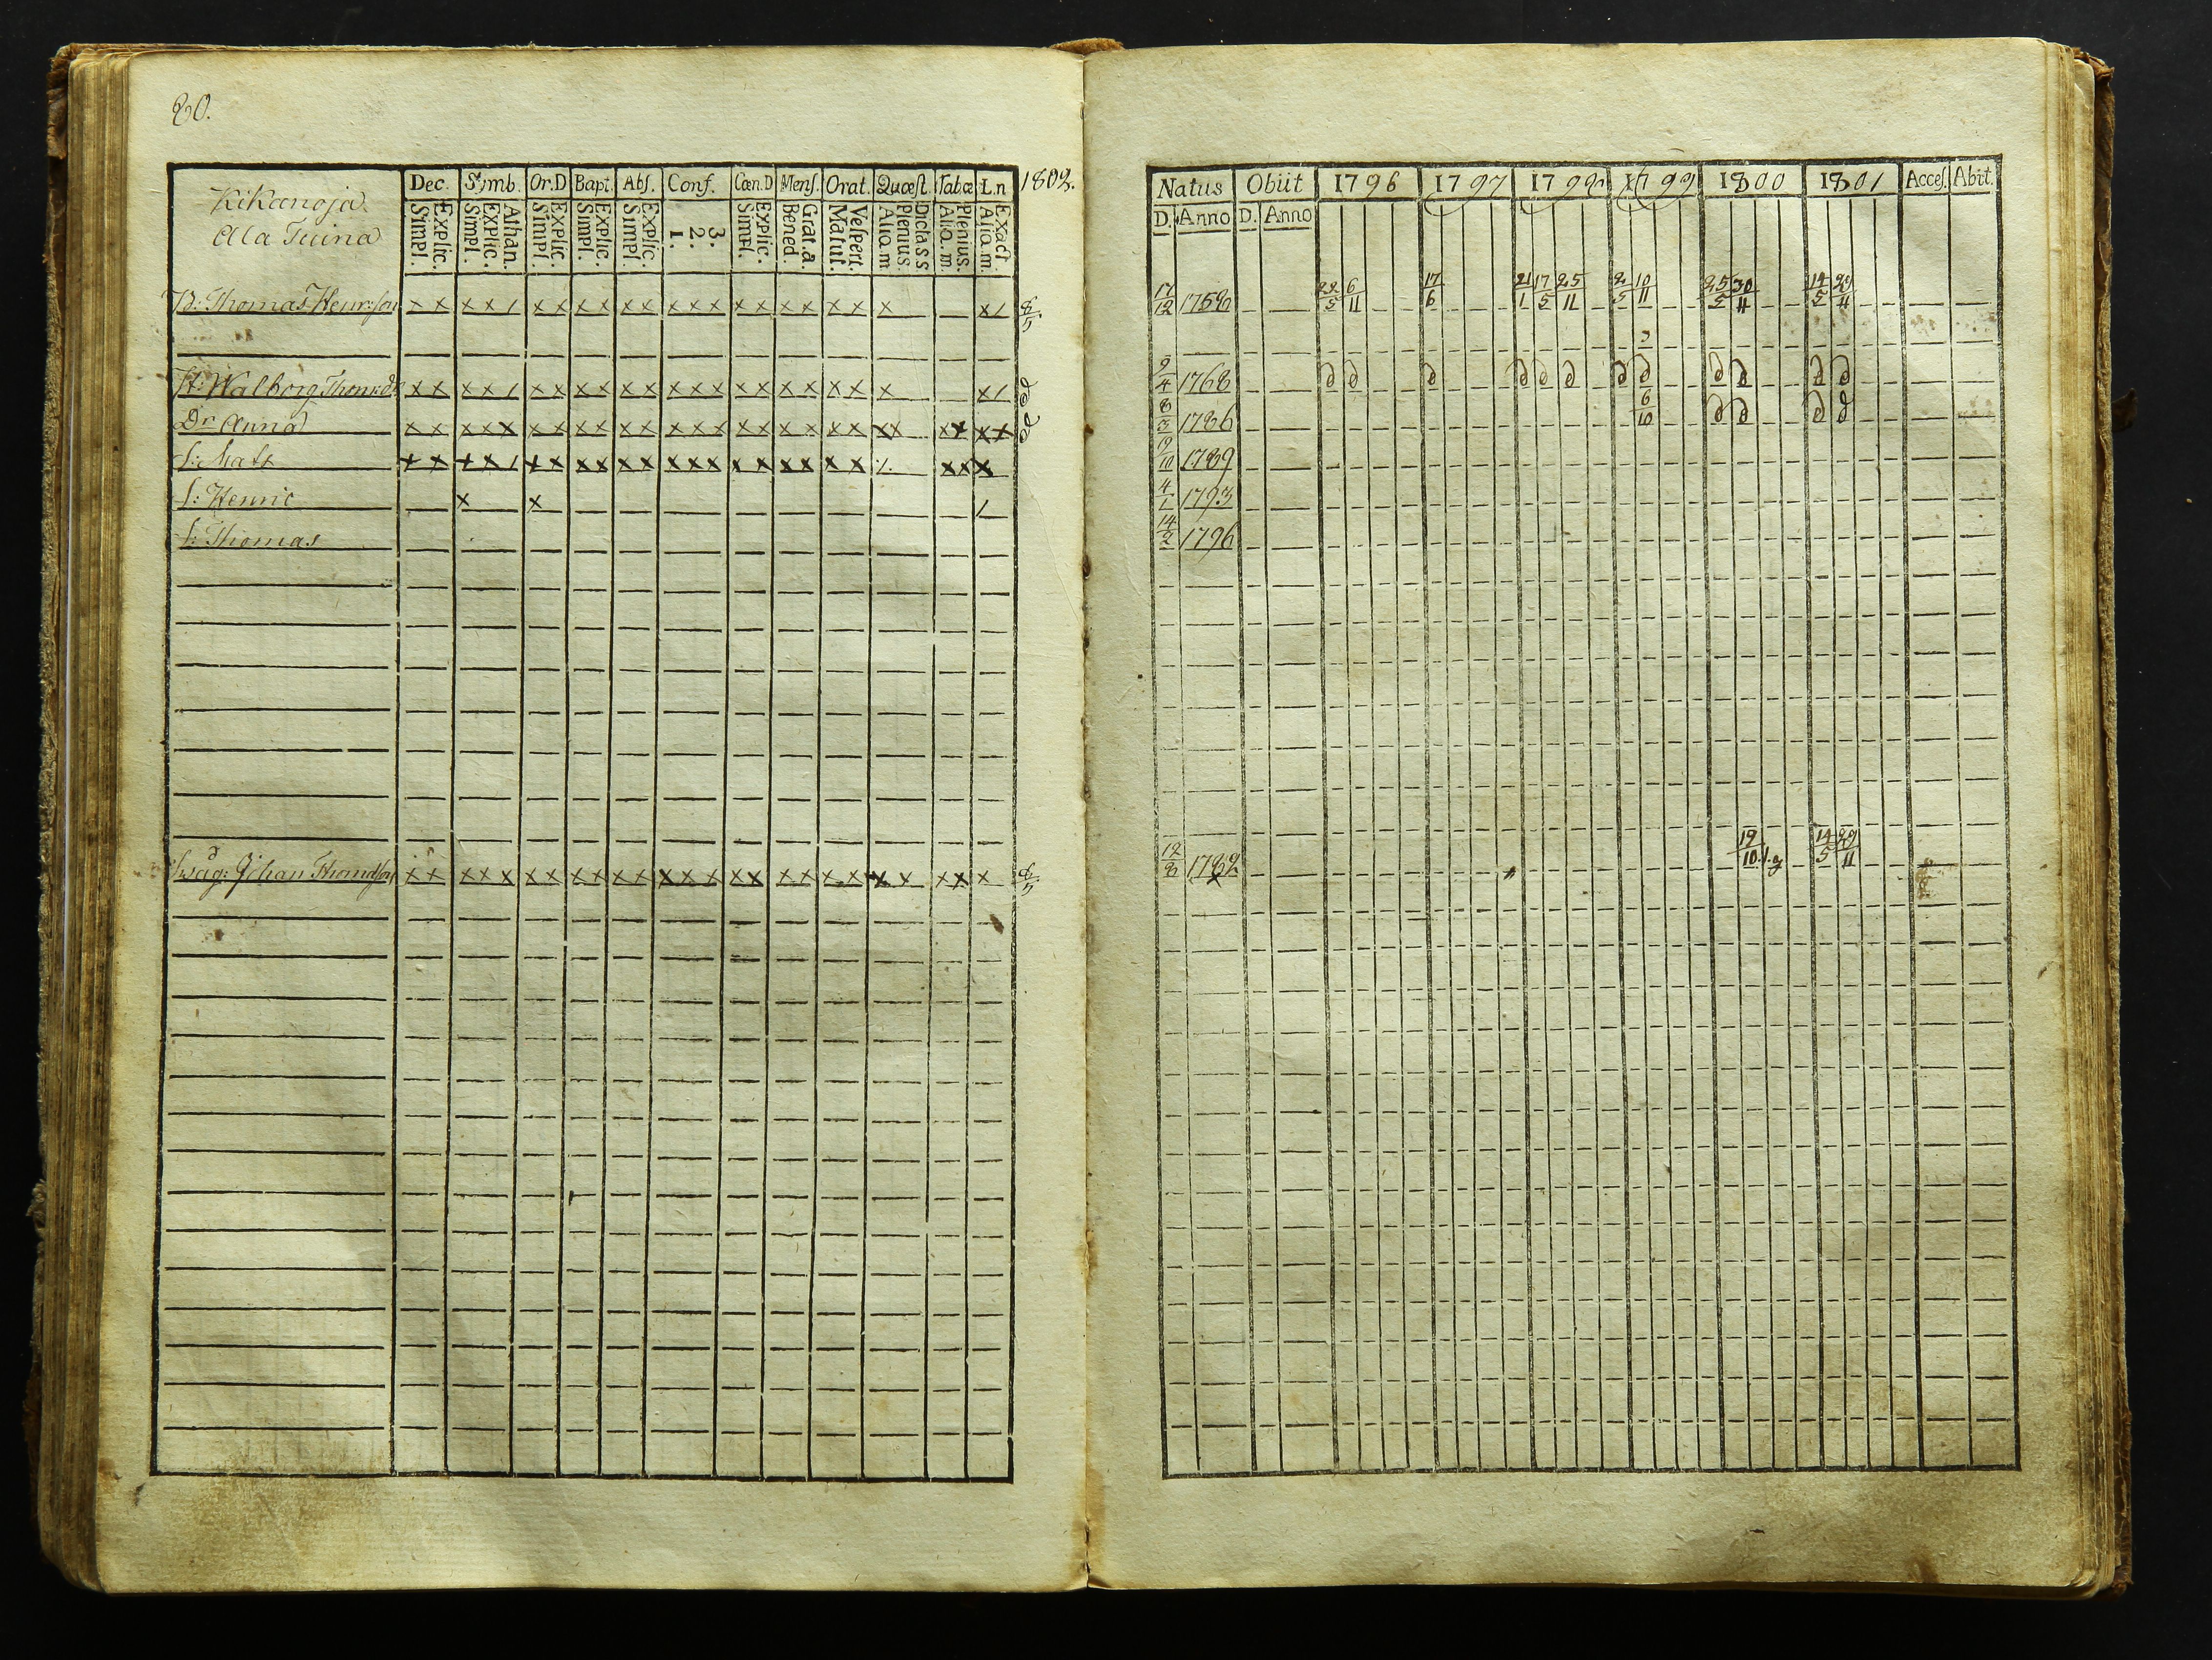 80.
Kikanoja
Ala Tuina
Dec. Symb. Or.D Bapt. Abs. Conf. Cœn.D Mens. Orat. Quæst. Tabæ L.n 1802.
Simpl. Explic. Simpl. Explic. Athan. Simpl. Explic. Simpl. Explic. Simpl. Explic. 1. 2. 3. Simpl. Explic. Bened. Grat.a. Matut. Vespert. Alio.m Plenius Dictass Alio.m. Plenius. Alio.m. Exact
B: Thomas Henrsson x x x x / x x x x x x x x x x x x x x x x x / 8/5
H: Walborg Thomsdr x x x x / x x x x x x x x x x x x x x x x x / d
Dr Anna x x x x x x x x x x x x x x x x x x x x x x x x x x d
S: Mats x x x x / x x x x x x x x x x x x x x x / x x x
S: Henric x x /
S: Thomas
Swåg: Johan Thomasson x x x x x x x x x x x x x x x x x x x x x x x x x 8/5
Natus Obiit 1796 1797 1798 1799 1800 1801 Acces. Abit.
D. Anno D. Anno
17/12 1758 22/5 6/11 17/6 21/1 17/5 25/11 2/5 10/11 25/5 30/11 14/5 29/11
9/4 1768 d d d d d d d d d d d d
8/3 1786 6/10 d d d d
9/10 1789
4/1 1793
14/2 1796
12/8 1782 19/10 14/5 29/11